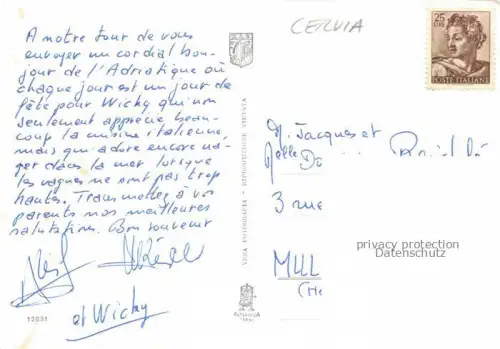 CERVIA
25
LIRE
POSTE ITALIANE
A notre tour de vous
envoyer un cordial bon-
jour de l'Adriatique où
chaque jour est un jour de
fête pour Wicky qui non
seulement apprécie beau-
coup la cuisine italienne,
mais qui adore encore na-
ger dans la mer lorsque
les vagues ne sont pas trop
hautes. Transmettez à vos
parents nos meilleures
salutations. Bon souvenir
et Wicky
12931
VERA FOTOGRAFIA - RIPRODUZIONE VIETATA
M. Jacques et
Melle
3 rue
MUL
(H
privacy protection
Datenschutz